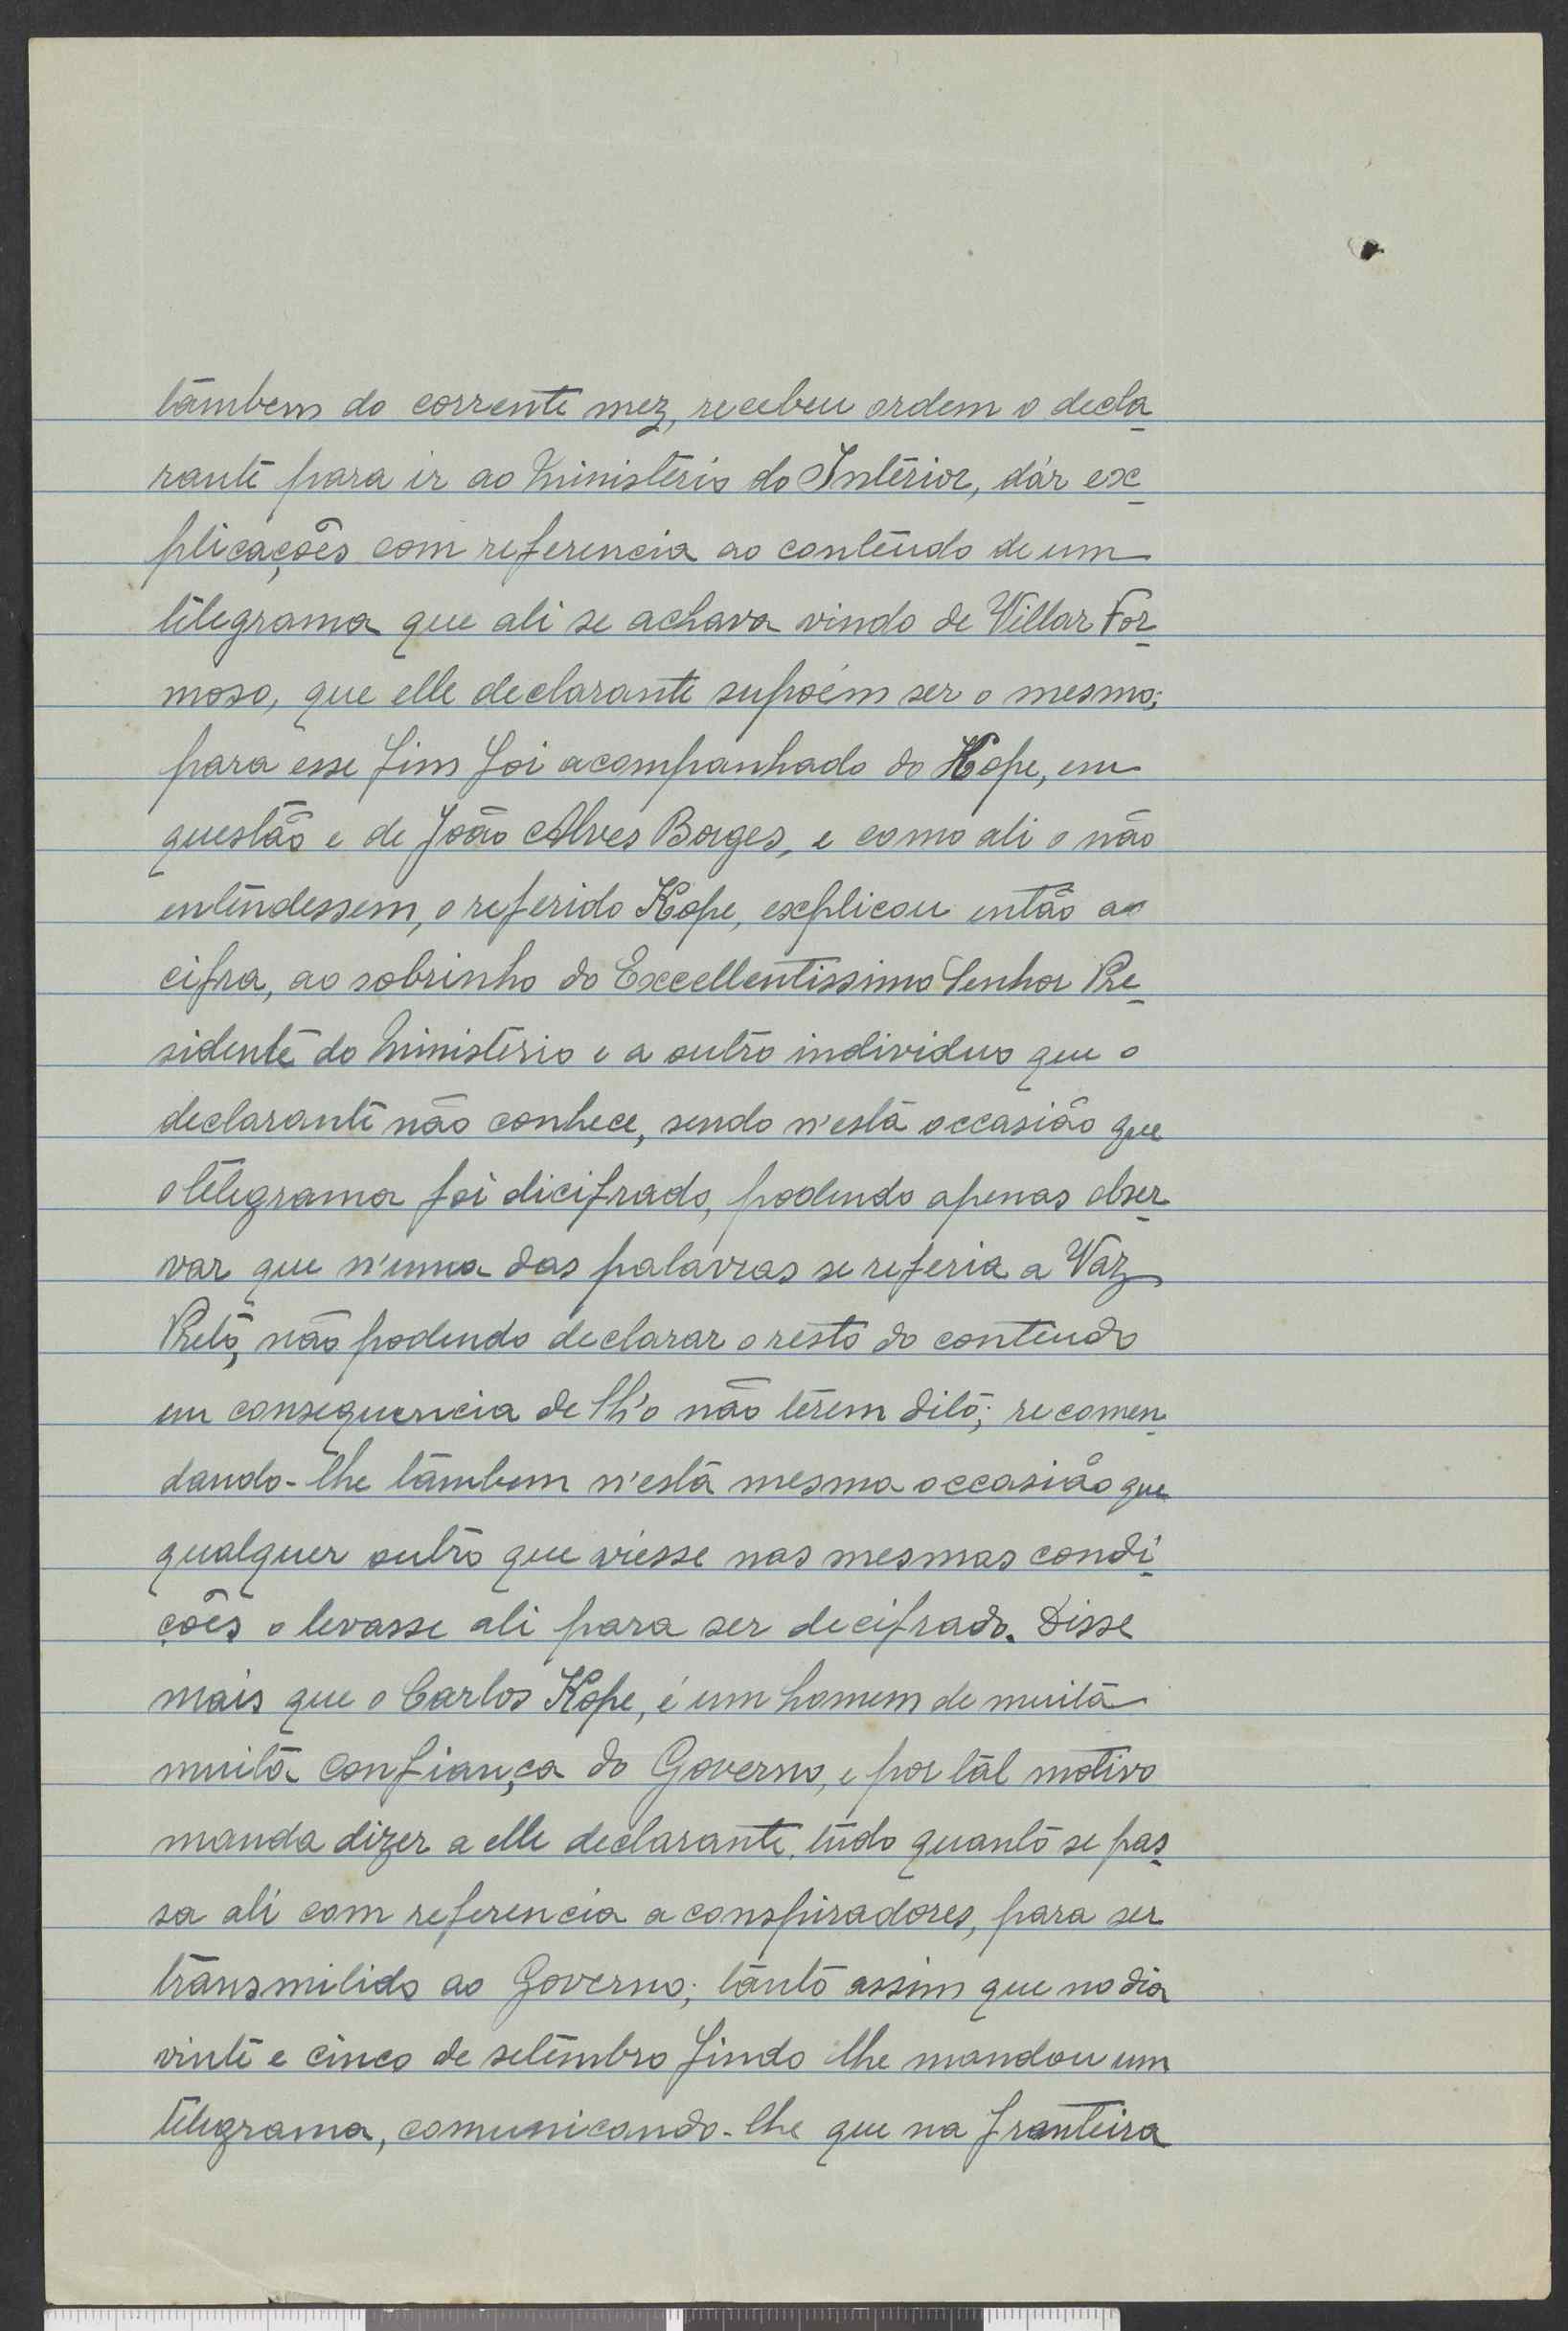 tambem do corrente mez, recebeu ordem o decla
rante para ir ao Ministerio do Interior, dár ex
plicações com referencia ao conteudo de um
telegrama que ali se achava vindo de Villar For
moso, que elle declarante supoém ser o mesmo;
para esse fim foi acompanhado do Kope, em
questão e de João Alves Borges, e como ali o não
entendessem, o referido Kope, explicou então a
cifra, ao sobrinho do Excellentissimo Senhor Pre
sidente do Ministerio e a outro individuo que o
declarante não conhece, sendo n'esta occasião que
o telegrama foi dicifrado, podendo apenas obser
var que n'uma das palavras se referia a Vaz
Preto, não podendo declarar o resto do conteudo
em consequencia de lh'o não terem dito; recomen
dando-lhe tambem n'esta mesma occasião que
qualquer outro que viesse nas mesmas condi
ções o levasse ali para ser decifrado. Disse
mais que o Carlos Kope, é um homem de muita
muita confiança do Governo, e por tal motivo
manda dizer a elle declarante, tudo quanto se pas
sa ali com referencia a conspiradores, para ser
transmitido ao Governo; tanto assim que no dia
vinte e cinco de setembro findo lhe mandou um
telegrama, comunicando-lhe que na fronteira